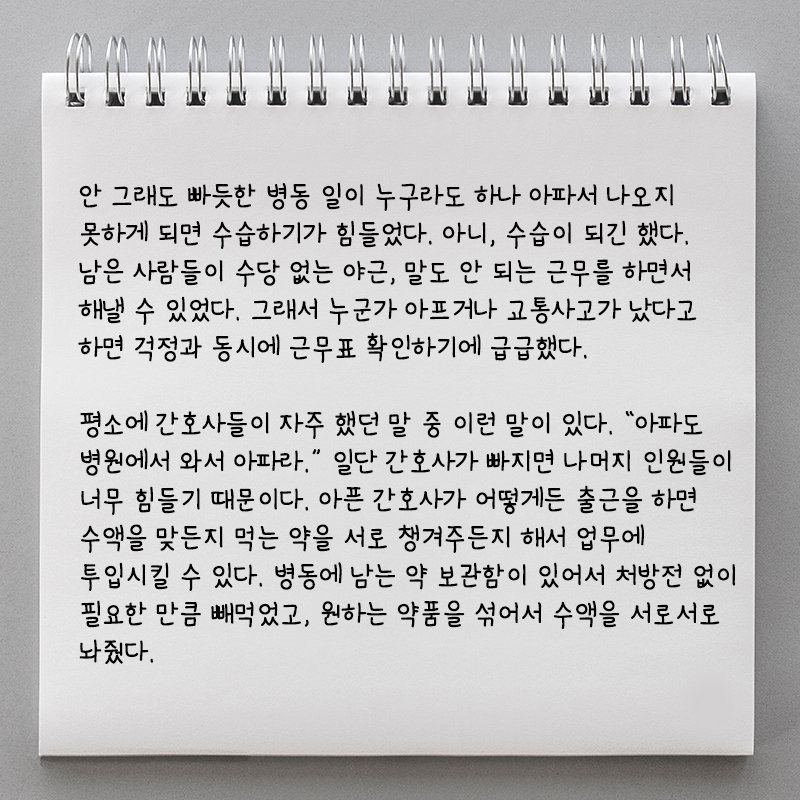 안 그래도 빠듯한 병동 일이 누구라도 하나 아파서 나오지
못하게 되면 수습하기가 힘들었다. 아니, 수습이 되긴 했다.
남은 사람들이 수당 없는 야근, 말도 안 되는 근무를 하면서
해낼 수 있었다. 그래서 누군가 아프거나 교통사고가 났다고
하면 걱정과 동시에 근무표 확인하기에 급급했다.
평소에 간호사들이 자주 했던 말 중 이런 말이 있다. “아파도
병원에서 와서 아파라.” 일단 간호사가 빠지면 나머지 인원들이
너무 힘들기 때문이다. 아픈 간호사가 어떻게든 출근을 하면
수액을 맞든지 먹는 약을 서로 챙겨주든지 해서 업무에
투입시킬 수 있다. 병동에 남는 약 보관함이 있어서 처방전 없이
필요한 만큼 빼먹었고, 원하는 약품을 섞어서 수액을 서로서로
놔줬다.